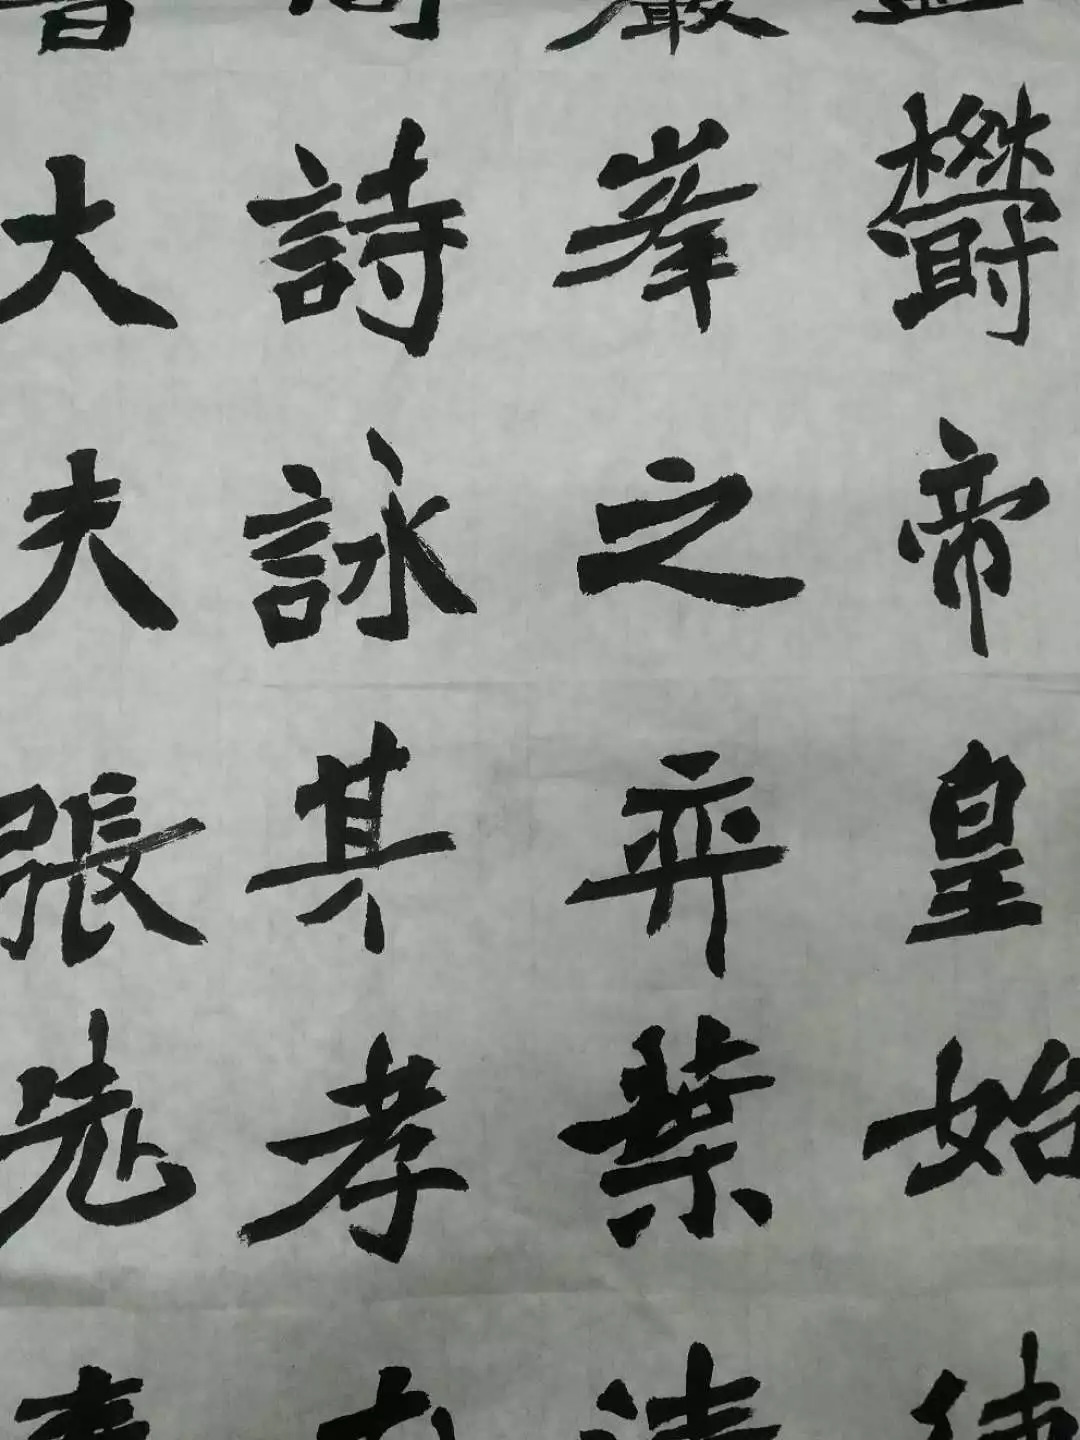 鬱帝皇始
峯之弈葉
詩詠其孝
大夫張老